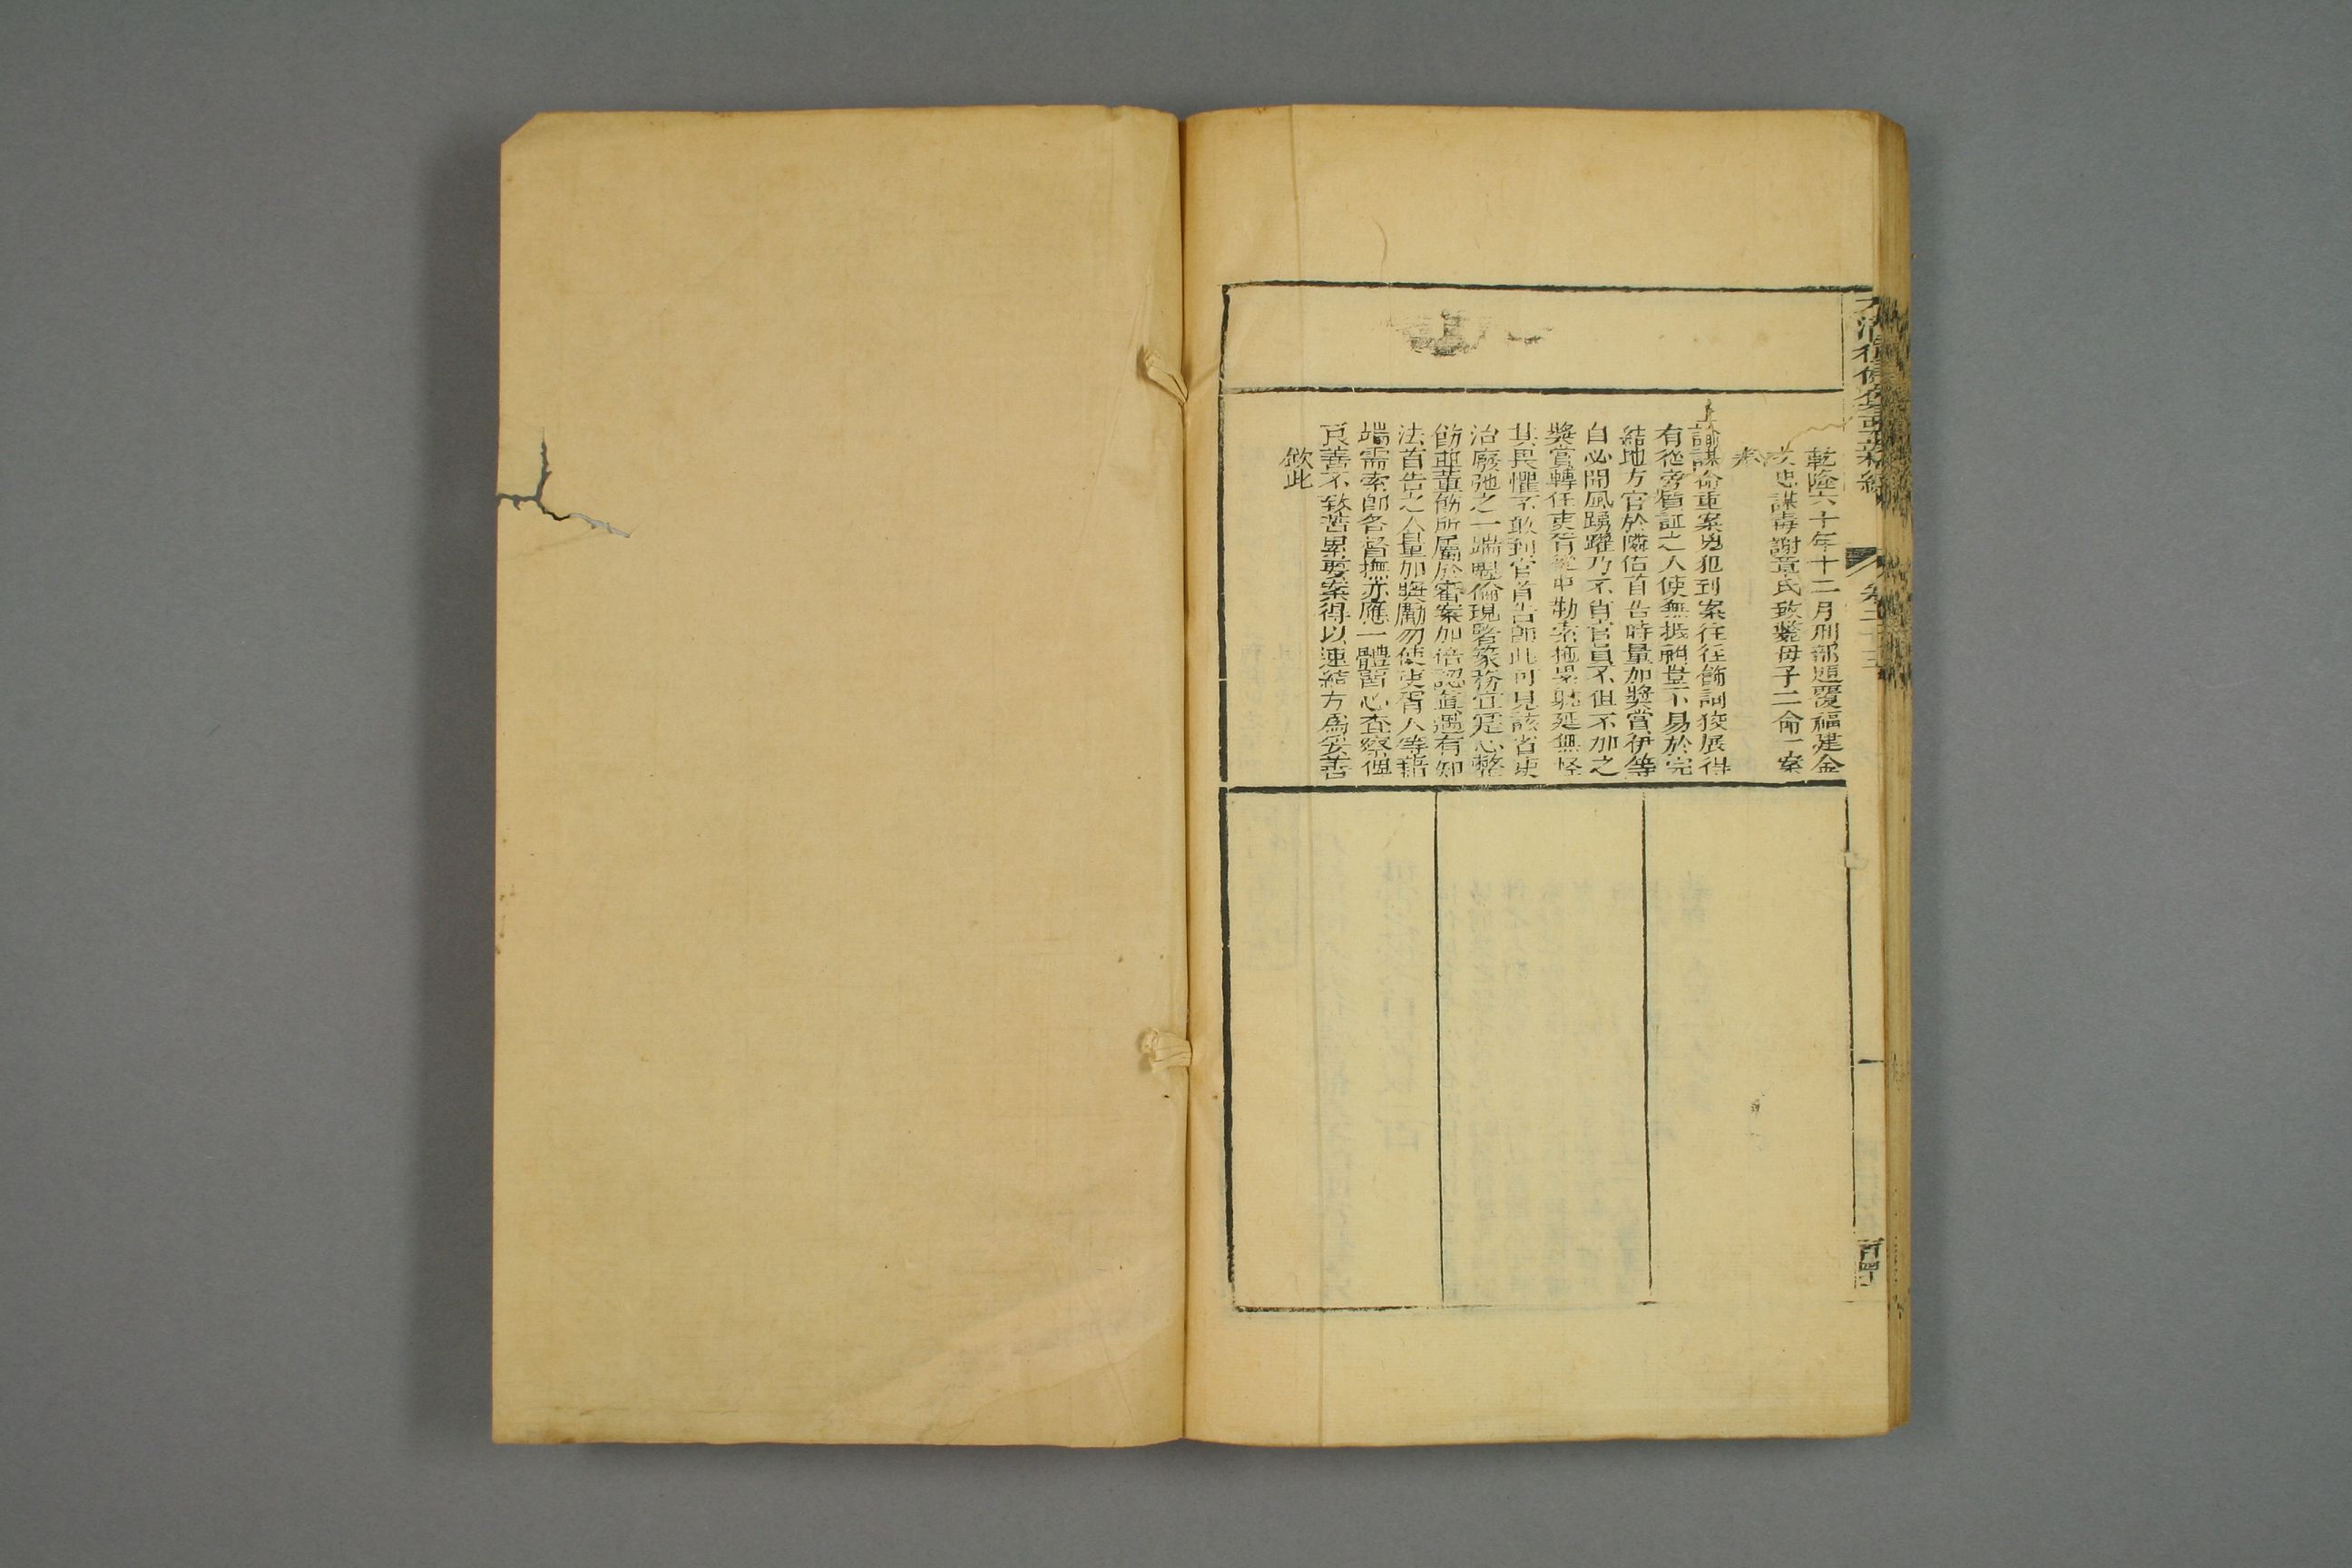 大清律例集要新編
卷三十三
乾隆六十年十二月刑部題覆福建金
忠謀毒謝章氏致斃母子二命一案
奉
上諭謀命重案兇犯到案往往飾詞狡展得
有從旁質証之人使無抵賴豈不易於完
結地方官於隣佑首告時量加獎賞伊等
自必聞風踴躍乃不肖官員不但不加之
獎賞轉任吏胥從中勒索拖累躭延無怪
其畏懼不敢到官首告即此可見該省吏
治廢弛之一端魁倫現署篆務宜定心整
飭並董飭所屬於審案加倍認真遇有知
法首告之人量加獎勵勿使吏胥人等藉
端需索即各督撫亦應一體留心查察俾
良善不致苦累要案得以速結方爲妥善
欽此